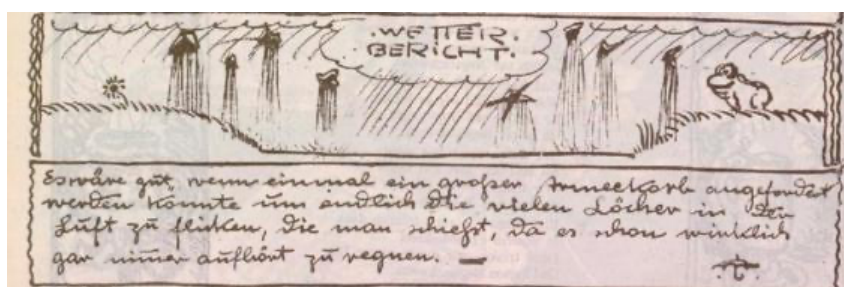 .WETTER.
BERICHT.
Es wäre gut, wenn einmal ein großer Armeekorb angefordert
werden könnte um endlich die vielen Löcher in der
Luft zu flicken, die man schießt, da es schon wirklich
gar nimmer aufhört zu regnen. —